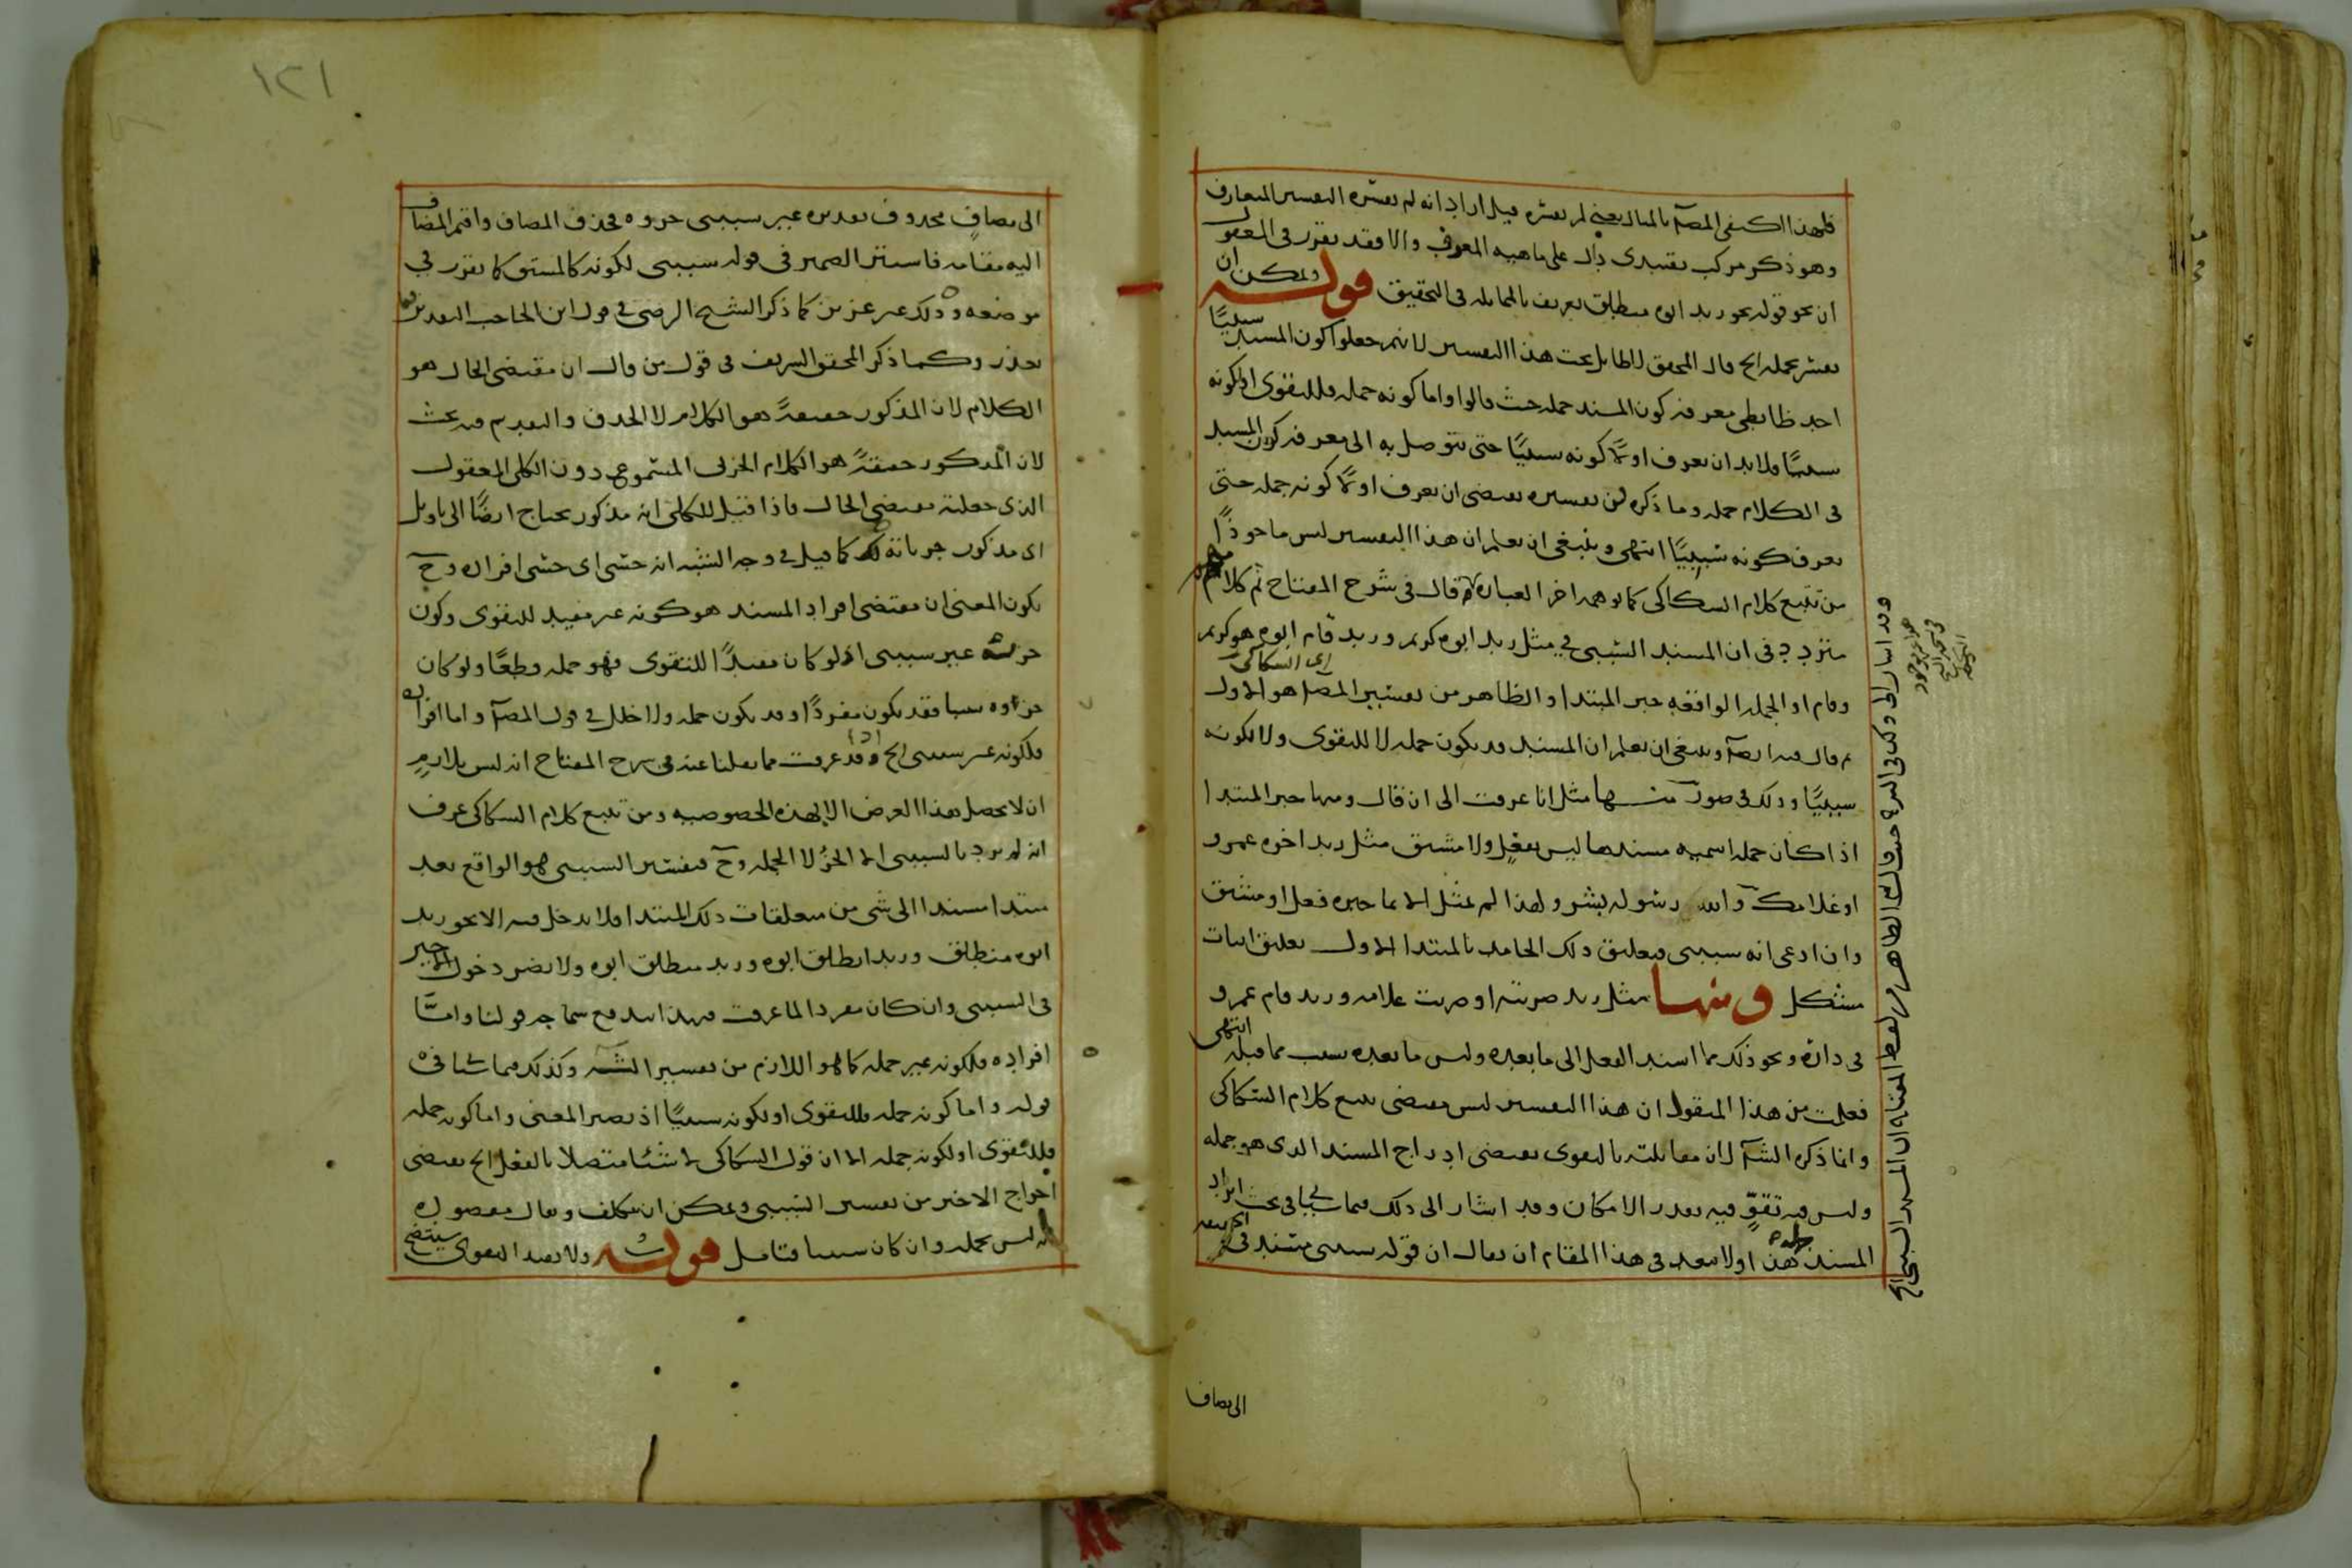 فلهذا اكتفى المصـ بالمثال يعني لم يفسره قيل اراد انه لم يفسره التفسير المتعارف
وهو ذكر مركب تقييدى دال على ماهيه المعرف والا فقد تقرر فى المعقول
ان نحو قوله نحو زيد ابوه منطلق تعريف بالمماثله فى التحقيق قوله ويمكن ان
يفسر بجمله الخ قال المحقق لا طايل تحت هذا التفسير لانهم جعلوا كون المسند سببيًا
احد ضابطى معرفه كون المسند جمله حيث قالوا واما كونه جمله فللتقوى او لكونه
سببيًا فلا بد ان يعرف اولًا كونه سببيًا حتى يتوصل به الى معرفه كون المسند
فى الكلام جمله وما ذكره من تفسيره يقتضى ان يعرف اولًا كونه جمله حتى
يعرف كونه سببيًا انتهى وينبغى ان يعلم ان هذا التفسير ليس ماخوذًا
من تتبع كلام السكاكى كما يوهمه اخر العباره لانه قال فى شرح المفتاح ثم كلامهم
متردد فى ان المسند السببى فى مثل زيد ابوه كريم وزيد قام ابوه هو كريم
وقام او الجمله الواقعه خبر المبتدا والظاهر من تفسير المصـ اى السكاكى هو الاول
ثم قال فيه ايضآ وينبغى ان يعلم ان المسند قد يكون جمله لا للتقوى ولا لكونه
سببيًا وذلك فى صور منــها مثل انا عرفت الى ان قال ومنها خبر المبتدا
اذا كان جمله اسميه مسندها ليس بفعل ولا مشتق مثل زيد اخوه عمرو
او غلامك والله رسوله بشر ولهذا لم يمثل الا بما خبره فعل او مشتق
وان ادعى انه سببى فتعليق ذلك الجامد بالمبتدا الاول تعليق اثبات
مشكل ومنها مثل زيد ضربته او ضربت غلامه وزيد قام عمرو
فى داره ونحو ذلك مما اسند الفعل الى ما بعده وليس ما بعده سبب مما قبله انتهى
فعلمت من هذا المنقول ان هذا التفسير ليس مقتضى تتبع كلام السكاكى
وانما ذكره الشـ لان مقابلته بالتقوى يقتضى ادراج المسند الذى هو جمله
وليس فيه تقوٍّ فيه بقدر الامكان وقد اشار الى ذلك فيما يجى فى بحث ايراد
المسند جمله هذا ولا يبعد فى هذا المقام ان يقال ان قوله سببى مسند فى
الى مضاف
وقد اشار الى ذلك فى الشرح حيث قال الظاهر من لفظ المفتاح ان المسند السببى الخ
١٢١
الى مضاف محذوف تقديره غير سببى جزوه فحذف المضاف واقيم المضاف
اليه مقامه فاستتر الضمير فى قوله سببى لكونه كالمشتق كما تقرر فى
موضعه وذلك غير عزيز كما ذكر الشيخ الرضى فى قول ابن الحاجب
تعذر وكما ذكر المحقق الشريف فى قول من قال ان مقتضى الحال هو
الكلام لان المذكور حقيقةً هو الكلام لا الحذف والتقديم فيه بحث
لان المذكور حقيقةً هو الكلام الجزئى المسموع دون الكلى المعقول
الذى جعلته مقتضى الحال فاذا قيل للكلى انه مذكور يحتاج ايضًا الى تاويل
اى مذكور جزئياته كما قيل فى وجه الشبه انه حسى اى حسى افراده وح
يكون المعنى ان مقتضى افراد المسند هو كونه غير مفيد للتقوى وكون
جزئه غير سببى اذ لو كان مفيدًا للتقوى فهو جمله قطعًا ولو كان
جزءوه سببيا فقد يكون مفردًا وقد يكون جمله ولا خلل فى قول المصـ واما افراده
فلكونه غير سببى الخ اذا قد عرفت مما نقلنا عنه فى شرح المفتاح انه ليس بلازم
ان لا يحصل هذا الغرض الا بهذه الخصوصيه ومن تتبع كلام السكاكى عرف
انه لم يرد بالسببى الا الجزء لا الجمله وح فيفسر السببى هو الواقع بعد
مبتدا مسندا الى شى من متعلقات ذلك المبتدا فلا يدخل فيه الا نحو زيد
ابوه منطلق وزيد انطلق ابوه وزيد منطلق ابوه ولا يضر دخول الاخير
فى السببى وان كان مفردا لما عرفت فبهذا اندفع سماجه قولنا وامّا
افراده فلكونه غير جمله كما هو اللازم من تفسير الشـ وكذلك فيما
قوله واما كونه جمله فللتقوى او لكونه سببيًا اذ يصير المعنى واما كونه جمله
فللتقوى او لكونه جمله الا ان قول السكاكى لا شيئا متصلا بالفعل الخ يقتضى
اخراج الاخير من تفسير السببى ويمكن ان يتكلف ويقال مقصوده
انه ليس بجمله وان كان سببيا فتامل قوله ولا يفيد التقوى سيتضح